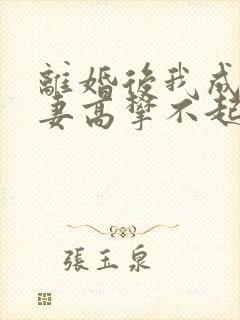 離婚後我成
妻高攀不起
張玉泉